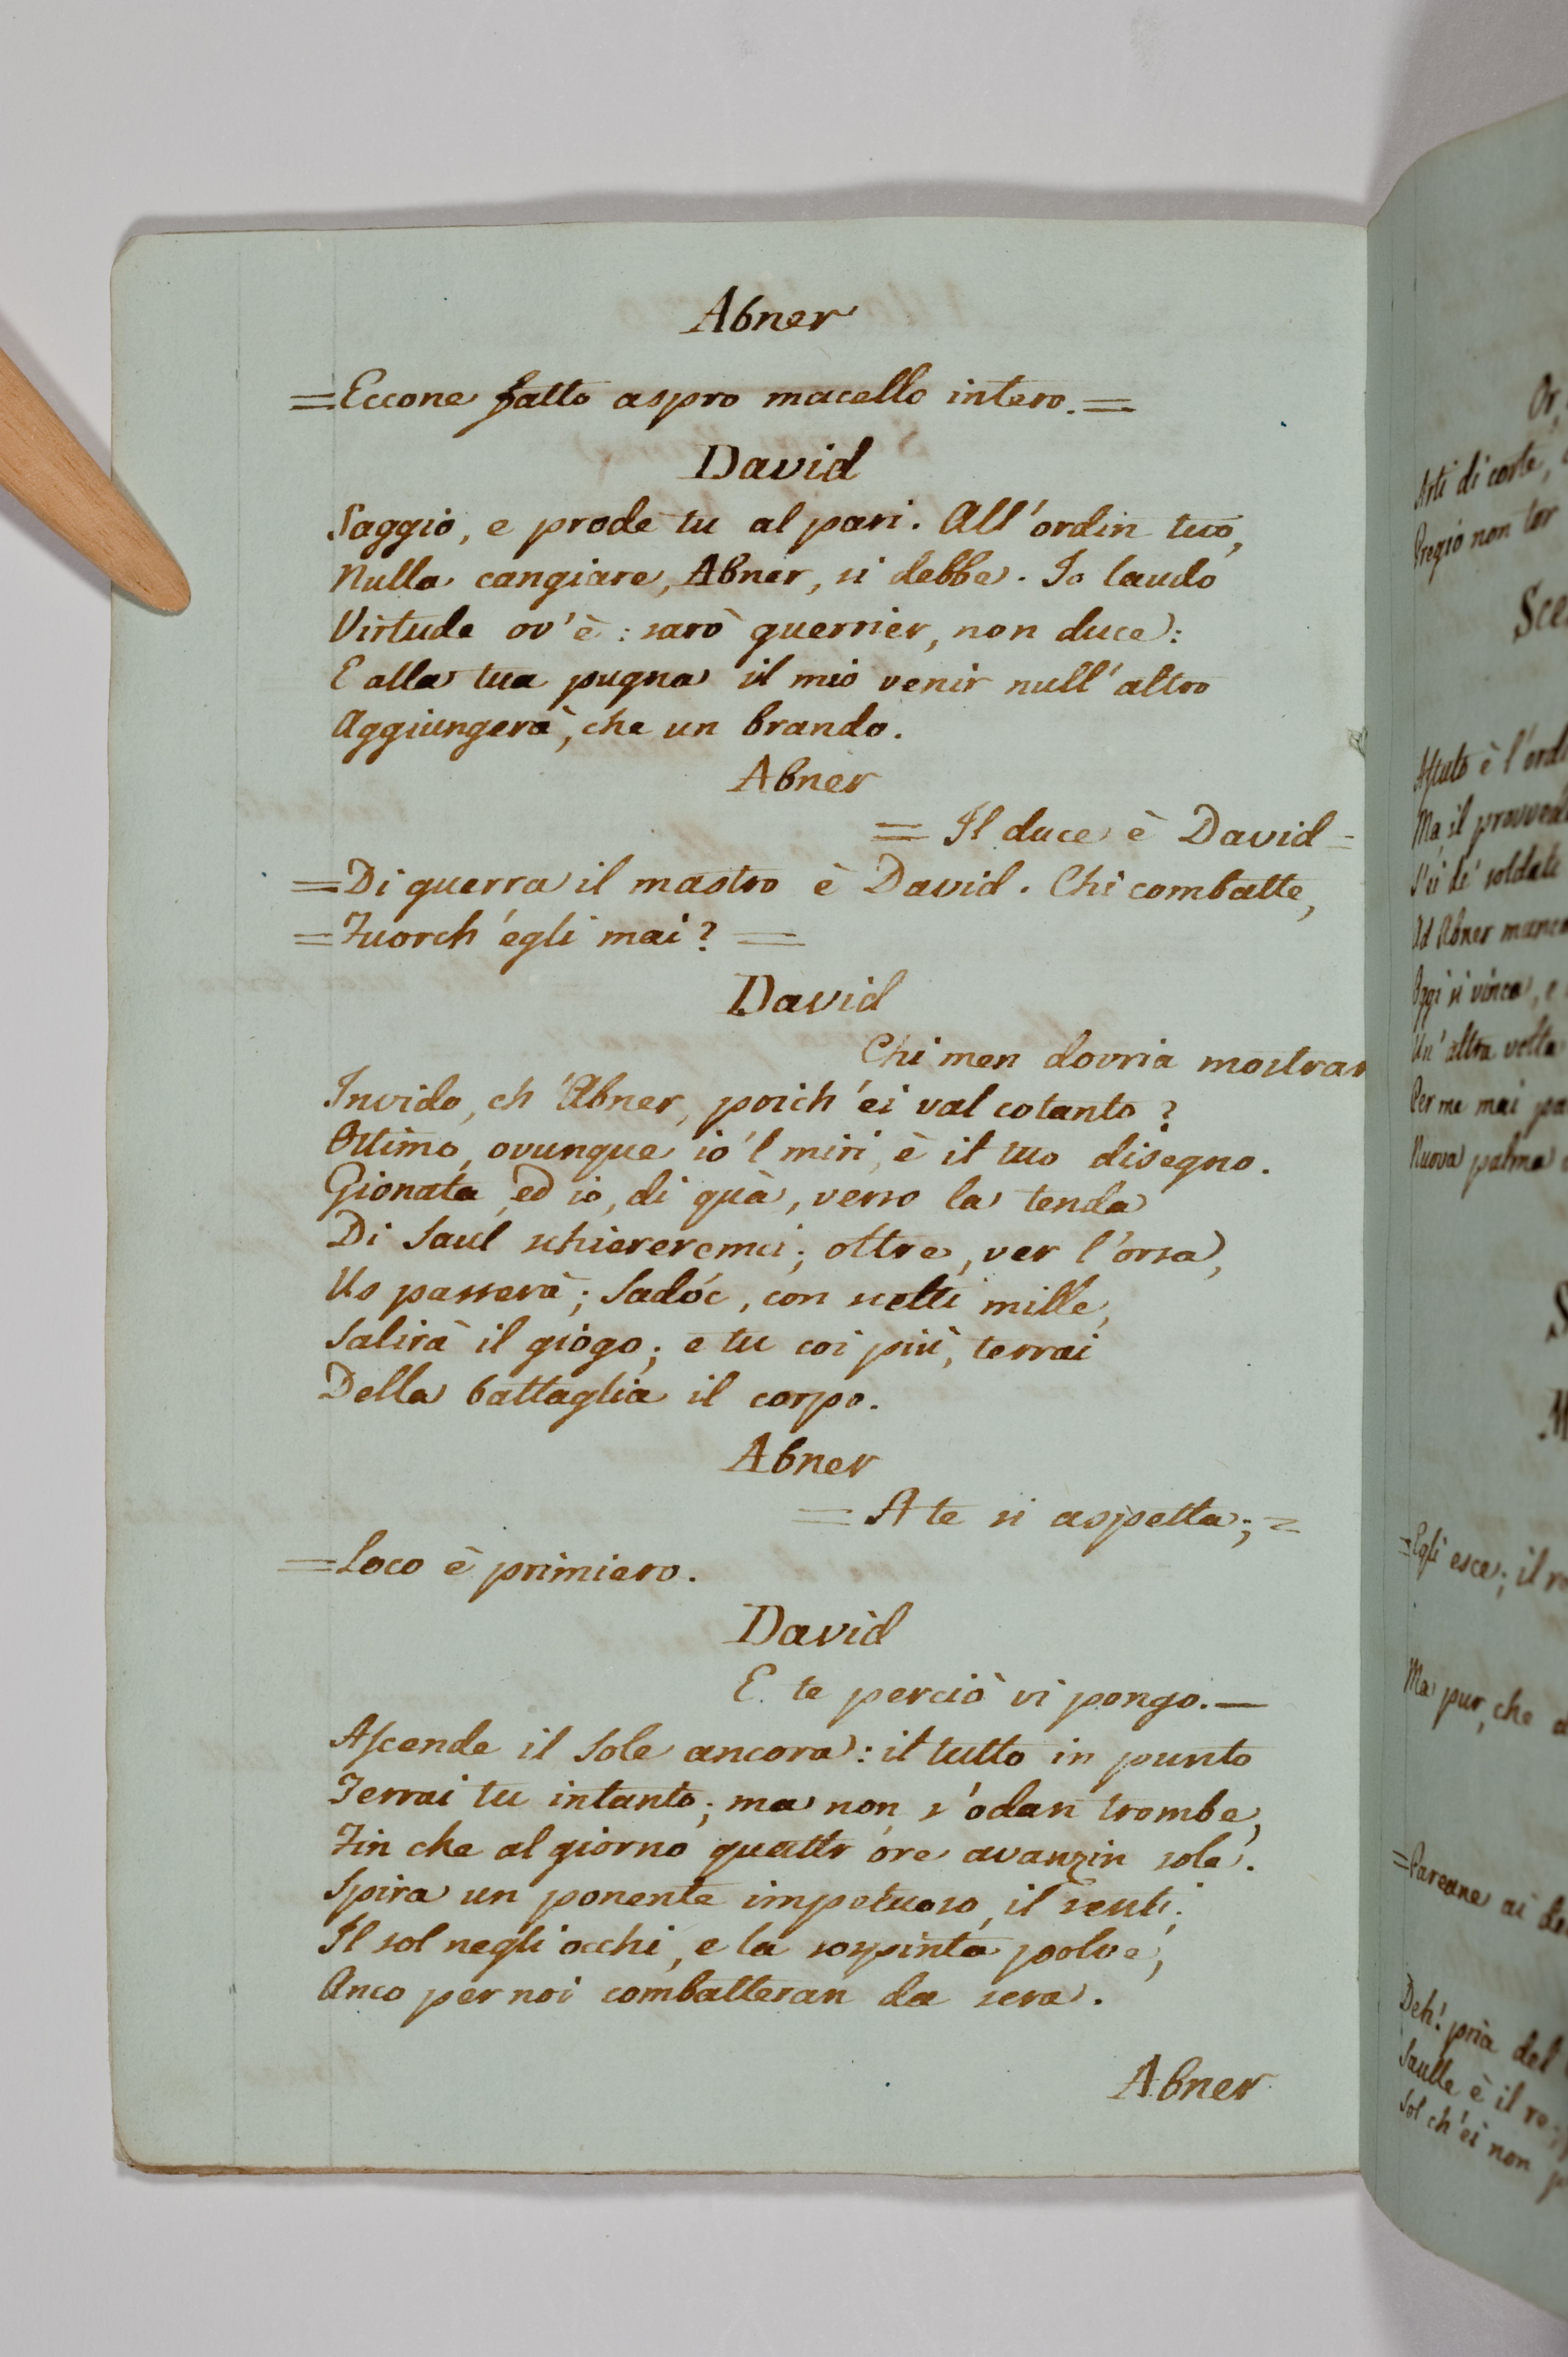 Abner
=Eccone fatto aspro macello intero.=
David
Saggio, e prode tu al pari. All'ordin tuo,
Nulla cangiare, Abner, si debbe. Io laudo
Virtude ov'è: sarò guerrier, non duce:
E alla tua pugna il mio venir null'altro
Aggiungerà, che un brando.
Abner
= Il duce è David=
=Di guerra il mastro è David. Chi combatte,
=Fuorch'egli mai? =
David
Chi men dovria mostrar
Invido, ch'Abner, poich'ei val cotanto?
Ottimo, ovunque io'l miri, è il tuo disegno.
Gionata, ed io, di quà, verso la tenda
Di Saul schiereremci; oltre, ver l'orsa,
Us passerà; Sadóc, con scelti mille,
Salirà il giogo; e tu coi più, terrai
Della battaglia il corpo.
Abner
= A te si aspetta; =
=Loco è primiero.
David
E te perciò vi pongo.—
Ascende il Sole ancora: il tutto in punto
Terrai tu intanto; ma non s'odan trombe,
Fin che al giorno quattr'ore avanzin sole.
Spira un ponente impetuoso, il senti;
Il sol negli occhi, e la sospinta polve,
Anco per noi combatteran da sera.
Abner
Or,
Arti di corte,
Pregio non tor
Sce
Astuto è l'ord
Ma, il provved
S'ei de' soldati
Ad Abner manca
Oggi si vinca, e
Un'altra volta
Per me mai pa
Nuova palma
S
M
=Egli esce; il r
Ma pur, che a
=Pareane ai
Deh! pria del
Saulle è il re;
Sol ch'ei non p